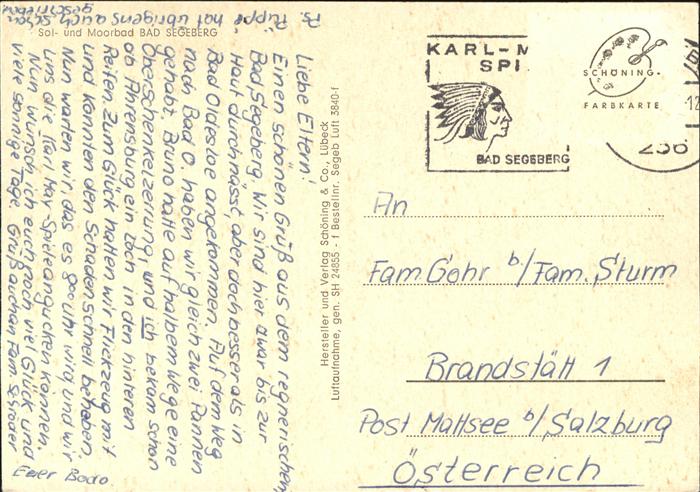 Sol- und Moorbad BAD SEGEBERG
Liebe Eltern!
Einen schönen Gruß aus dem regnerischen
Bad Segeberg. Wir sind hier zwar bis zur
Haut durchnässt, aber doch besser als in
Bad Oldesloe angekommen. Auf dem Weg
nach Bad O. haben wir gleich zwei Pannen
gehabt. Bruno hatte auf halbem Wege eine
Oberschenkelzerrung, und ich bekam schon
ab Ahrensburg ein Loch in den hinteren
Reifen. Zum Glück hatten wir Flickzeug mit
und konnten den Schaden schnell beheben.
Nun warten wir, das es 8 00 Uhr wird und wir
uns die Karl May-Spiele angucken können.
Nun wünsch ich euch noch viel Glück und
viele sonnige Tage. Grüß auch an Fam.
Euer Bodo
Ps. "Puppe" hat übrigens auch schön
geschrieben
Hersteller und Verlag Schöning & Co., Lübeck
Luftaufnahme, gen. SH 24855 - f Bestellnr. Segeb Luft 3840-f
KARL-M
SPI
BAD SEGEBERG
SCHÖNING-
FARBKARTE
236
An
Fam Gohr b/Fam. Sturm
Brandstätt 1
Post Mattsee b/Salzburg
Österreich